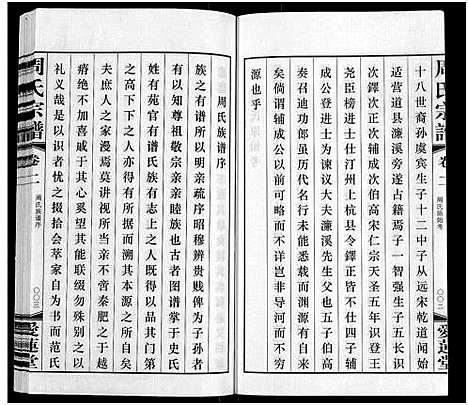 周氏宗譜
卷二
周氏族始考
〇〇二
愛蓮堂
十八世裔孫虞賓生子十二中子从远宋乾道間始
适营道县濂溪旁遂占古籍焉子一智强生子五长识
次鐸次正次伯次鐸正不仕伯高宋仁宗天圣五年
尧臣榜进士仕汀州上杭县令鐸正皆不仕四子辅
成公登进士为谏议大夫濂溪先生父也五子伯高
奏召迪功郎古代名行未能悉载以我周氏自强始
矣倘谓前以辅成公以前可略而不详岂非导水而不
源也乎
周氏族譜序
族之有谱所以明亲疏序昭穆辨贵贱俾为子孙者
有以知尊祖敬宗亲亲睦族也古者图谱掌于史氏
姓有苑官有谱氏族有志上之人既得以品其门第
之高下下之人亦因而溯其本源之所自矣
夫庶人之家漫焉莫讲视宗亲不啻秦肥之于越
瘠绝不加喜戚于其心奚望其能有孝弟之风与
礼义哉是以识者忧之掇会萃家自为书而范氏
周氏宗譜
卷二
周氏族譜序
〇〇三
愛蓮堂